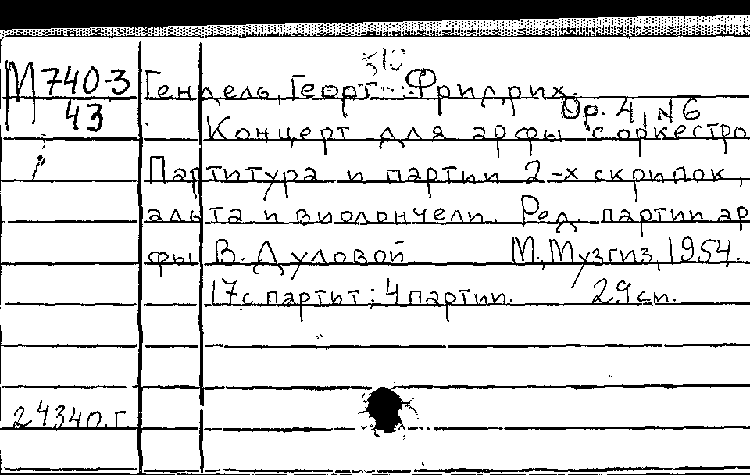 М 740-3 Гендель, Георг Фридрих.
43 Op. 4, N 6
Концерт для арфы с оркестро
Партитура и партии 2-х скрипок,
альта и виолончели. Ред. партии ар
фы В. Дуловой М., Музгиз, 1954.
17 с партит; 4 партии. 29 см.
24340.г